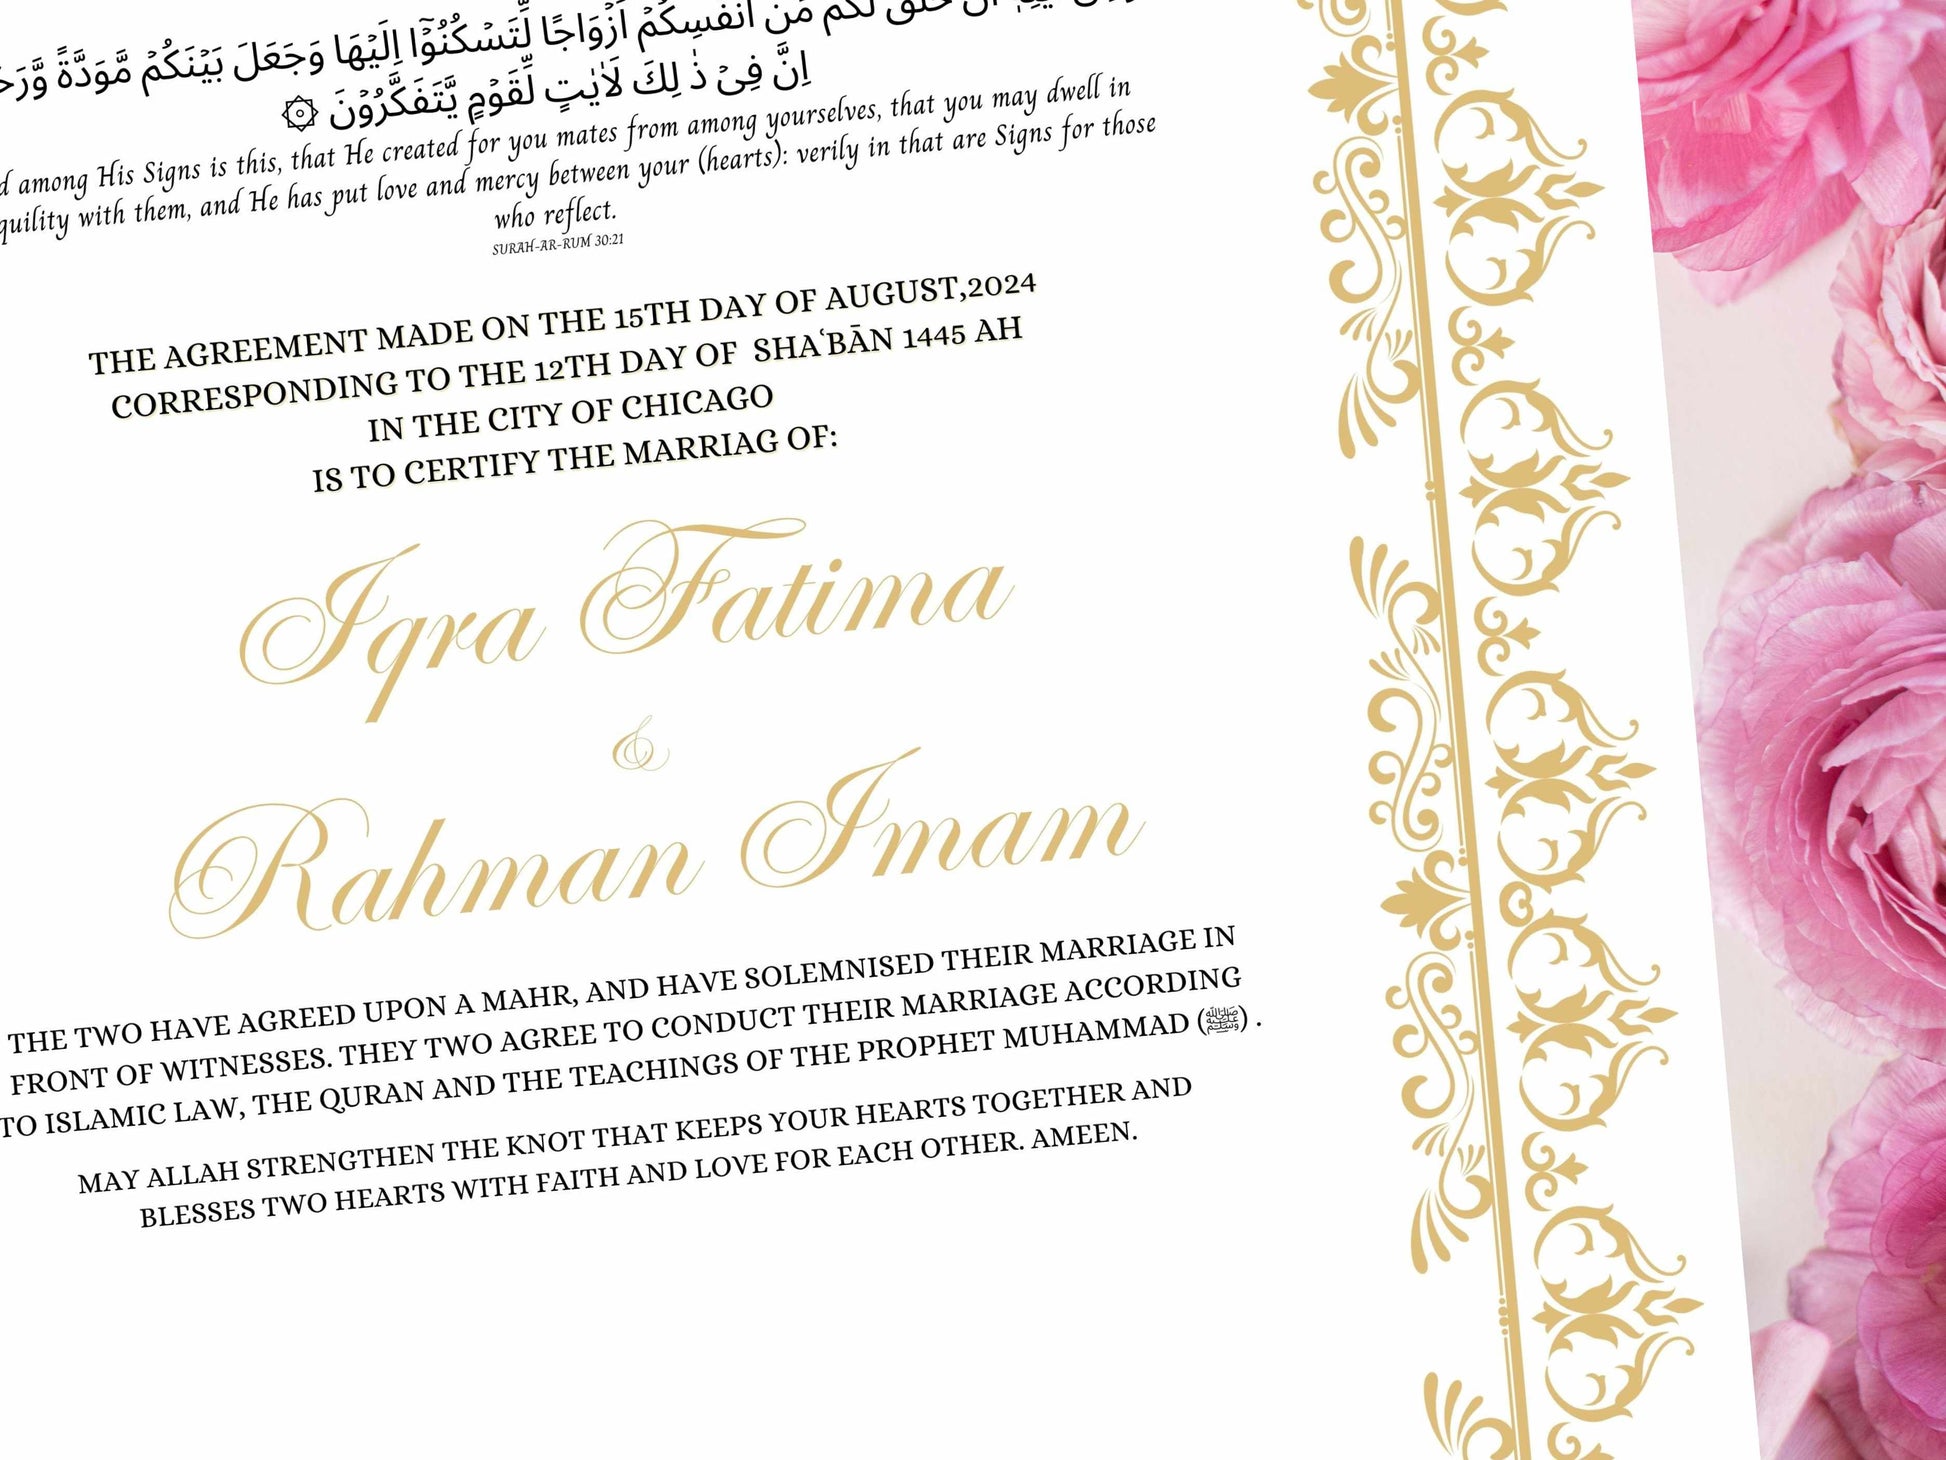 اَنْ خَلَقَ لَكُمْ مِّنْ اَنْفُسِكُمْ اَزْوَاجًا لِّتَسْكُنُوْٓا اِلَيْهَا وَجَعَلَ بَيْنَكُمْ مَّوَدَّةً
اِنَّ فِىْ ذٰ لِكَ لَاٰيٰتٍ لِّقَوْمٍ يَّتَفَكَّرُوْنَ ۞
among His Signs is this, that He created for you mates from among yourselves, that you may dwell in
quility with them, and He has put love and mercy between your (hearts): verily in that are Signs for those
who reflect.
SURAH-AR-RUM 30:21
THE AGREEMENT MADE ON THE 15TH DAY OF AUGUST,2024
CORRESPONDING TO THE 12TH DAY OF SHAʿBĀN 1445 AH
IN THE CITY OF CHICAGO
IS TO CERTIFY THE MARRIAG OF:
Iqra Fatima
&
Rahman Imam
THE TWO HAVE AGREED UPON A MAHR, AND HAVE SOLEMNISED THEIR MARRIAGE IN
FRONT OF WITNESSES. THEY TWO AGREE TO CONDUCT THEIR MARRIAGE ACCORDING
TO ISLAMIC LAW, THE QURAN AND THE TEACHINGS OF THE PROPHET MUHAMMAD (ﷺ) .
MAY ALLAH STRENGTHEN THE KNOT THAT KEEPS YOUR HEARTS TOGETHER AND
BLESSES TWO HEARTS WITH FAITH AND LOVE FOR EACH OTHER. AMEEN.